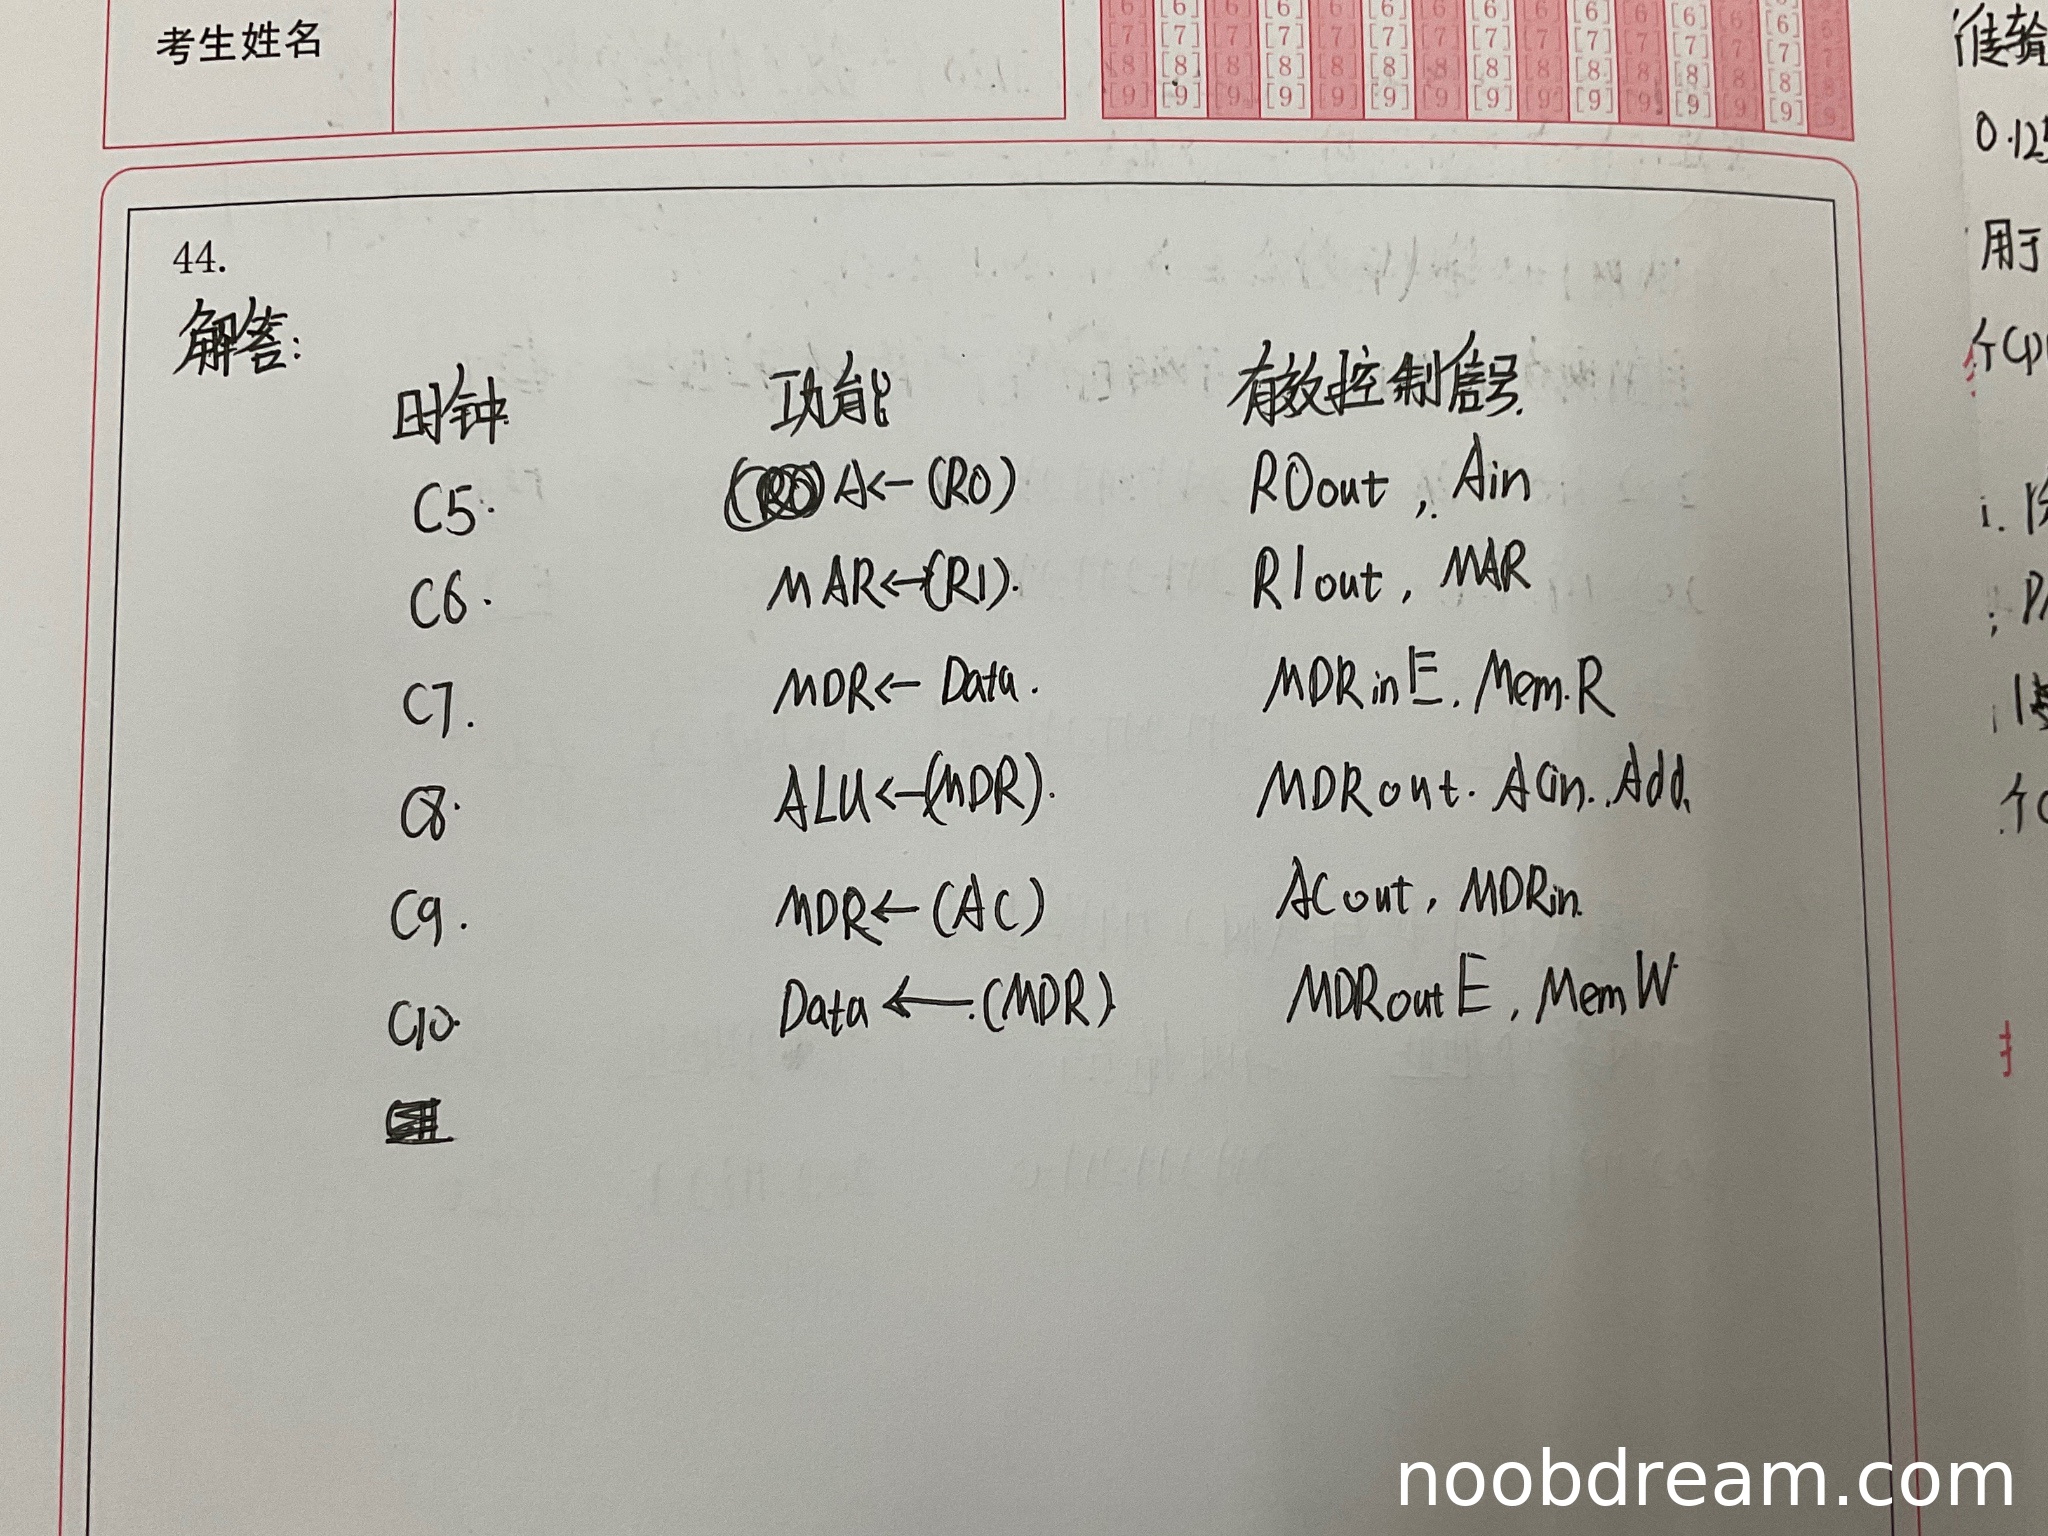 考生姓名
[6] [6] [6] [6] [6] [6] [6] [6] [6] [6] [6] [6] [6] [6] 6
[7] [7] [7] [7] [7] [7] [7] [7] [7] [7] [7] [7] [7] [7] 7
[8] [8] [8] [8] [8] [8] [8] [8] [8] [8] [8] [8] [8] [8] 8
[9] [9] [9] [9] [9] [9] [9] [9] [9] [9] [9] [9] [9] [9] 9
44.
解答:
时钟 功能 有效控制信号.
C5. A←(R0) R0out, Ain
C6. MAR←(R1). R1out, MAR
C7. MDR← Data. MDRinE. Mem.R
C8. ALU←(MDR). MDRout. ACin. Add.
C9. MDR←(AC) ACout, MDRin.
C10. Data ←(MDR) MDRoutE, MemW
传输
0.12
用于
个CP
i.
noobdream.com